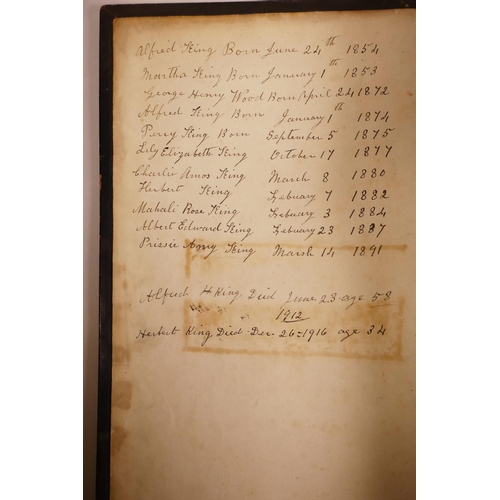 Alfred King Born June 24th 1854
Martha King Born January 1th 1853
George Henry Wood Born April 24 1872
Alfred King Born January 1th 1874
Percy King Born September 5 1875
Lily Elizabeth King October 17 1877
Charlie Amos King March 8 1880
Herbert King Febuary 7 1882
Mahali Rose King Febuary 3 1884
Albert Edward King Febuary 23 1887
Prissie King Marsh 14 1891
Alfred H King Died June 23 age 58
1912
Herbert King Died Dec 26=1916 age 34